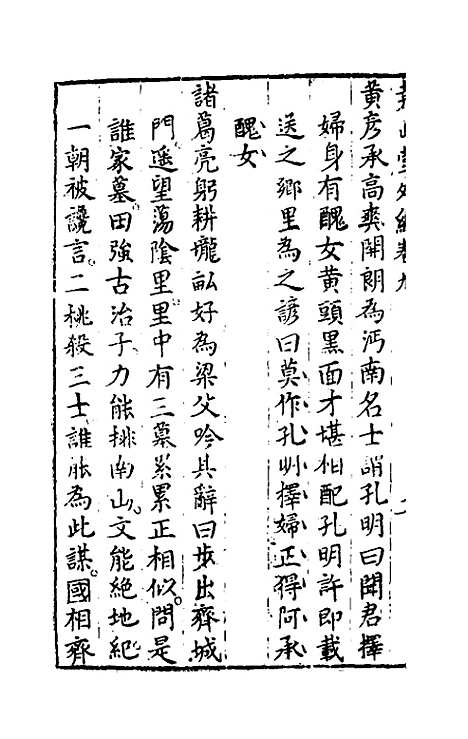 堯山堂外紀卷九
黃彥承高爽開朗為沔南名士謂孔明曰聞君擇
婦身有醜女黃頭黑面才堪相配孔明許即載
送之鄉里為之諺曰莫作孔明擇婦正得阿承
醜女
諸葛亮躬耕壠畝好為梁父吟其辭曰步出齊城
門遥望蕩陰里里中有三墓累累正相似問是
誰家墓田強古治子力能排南山文能絕地紀
一朝被讒言二桃殺三士誰能為此謀國相齊